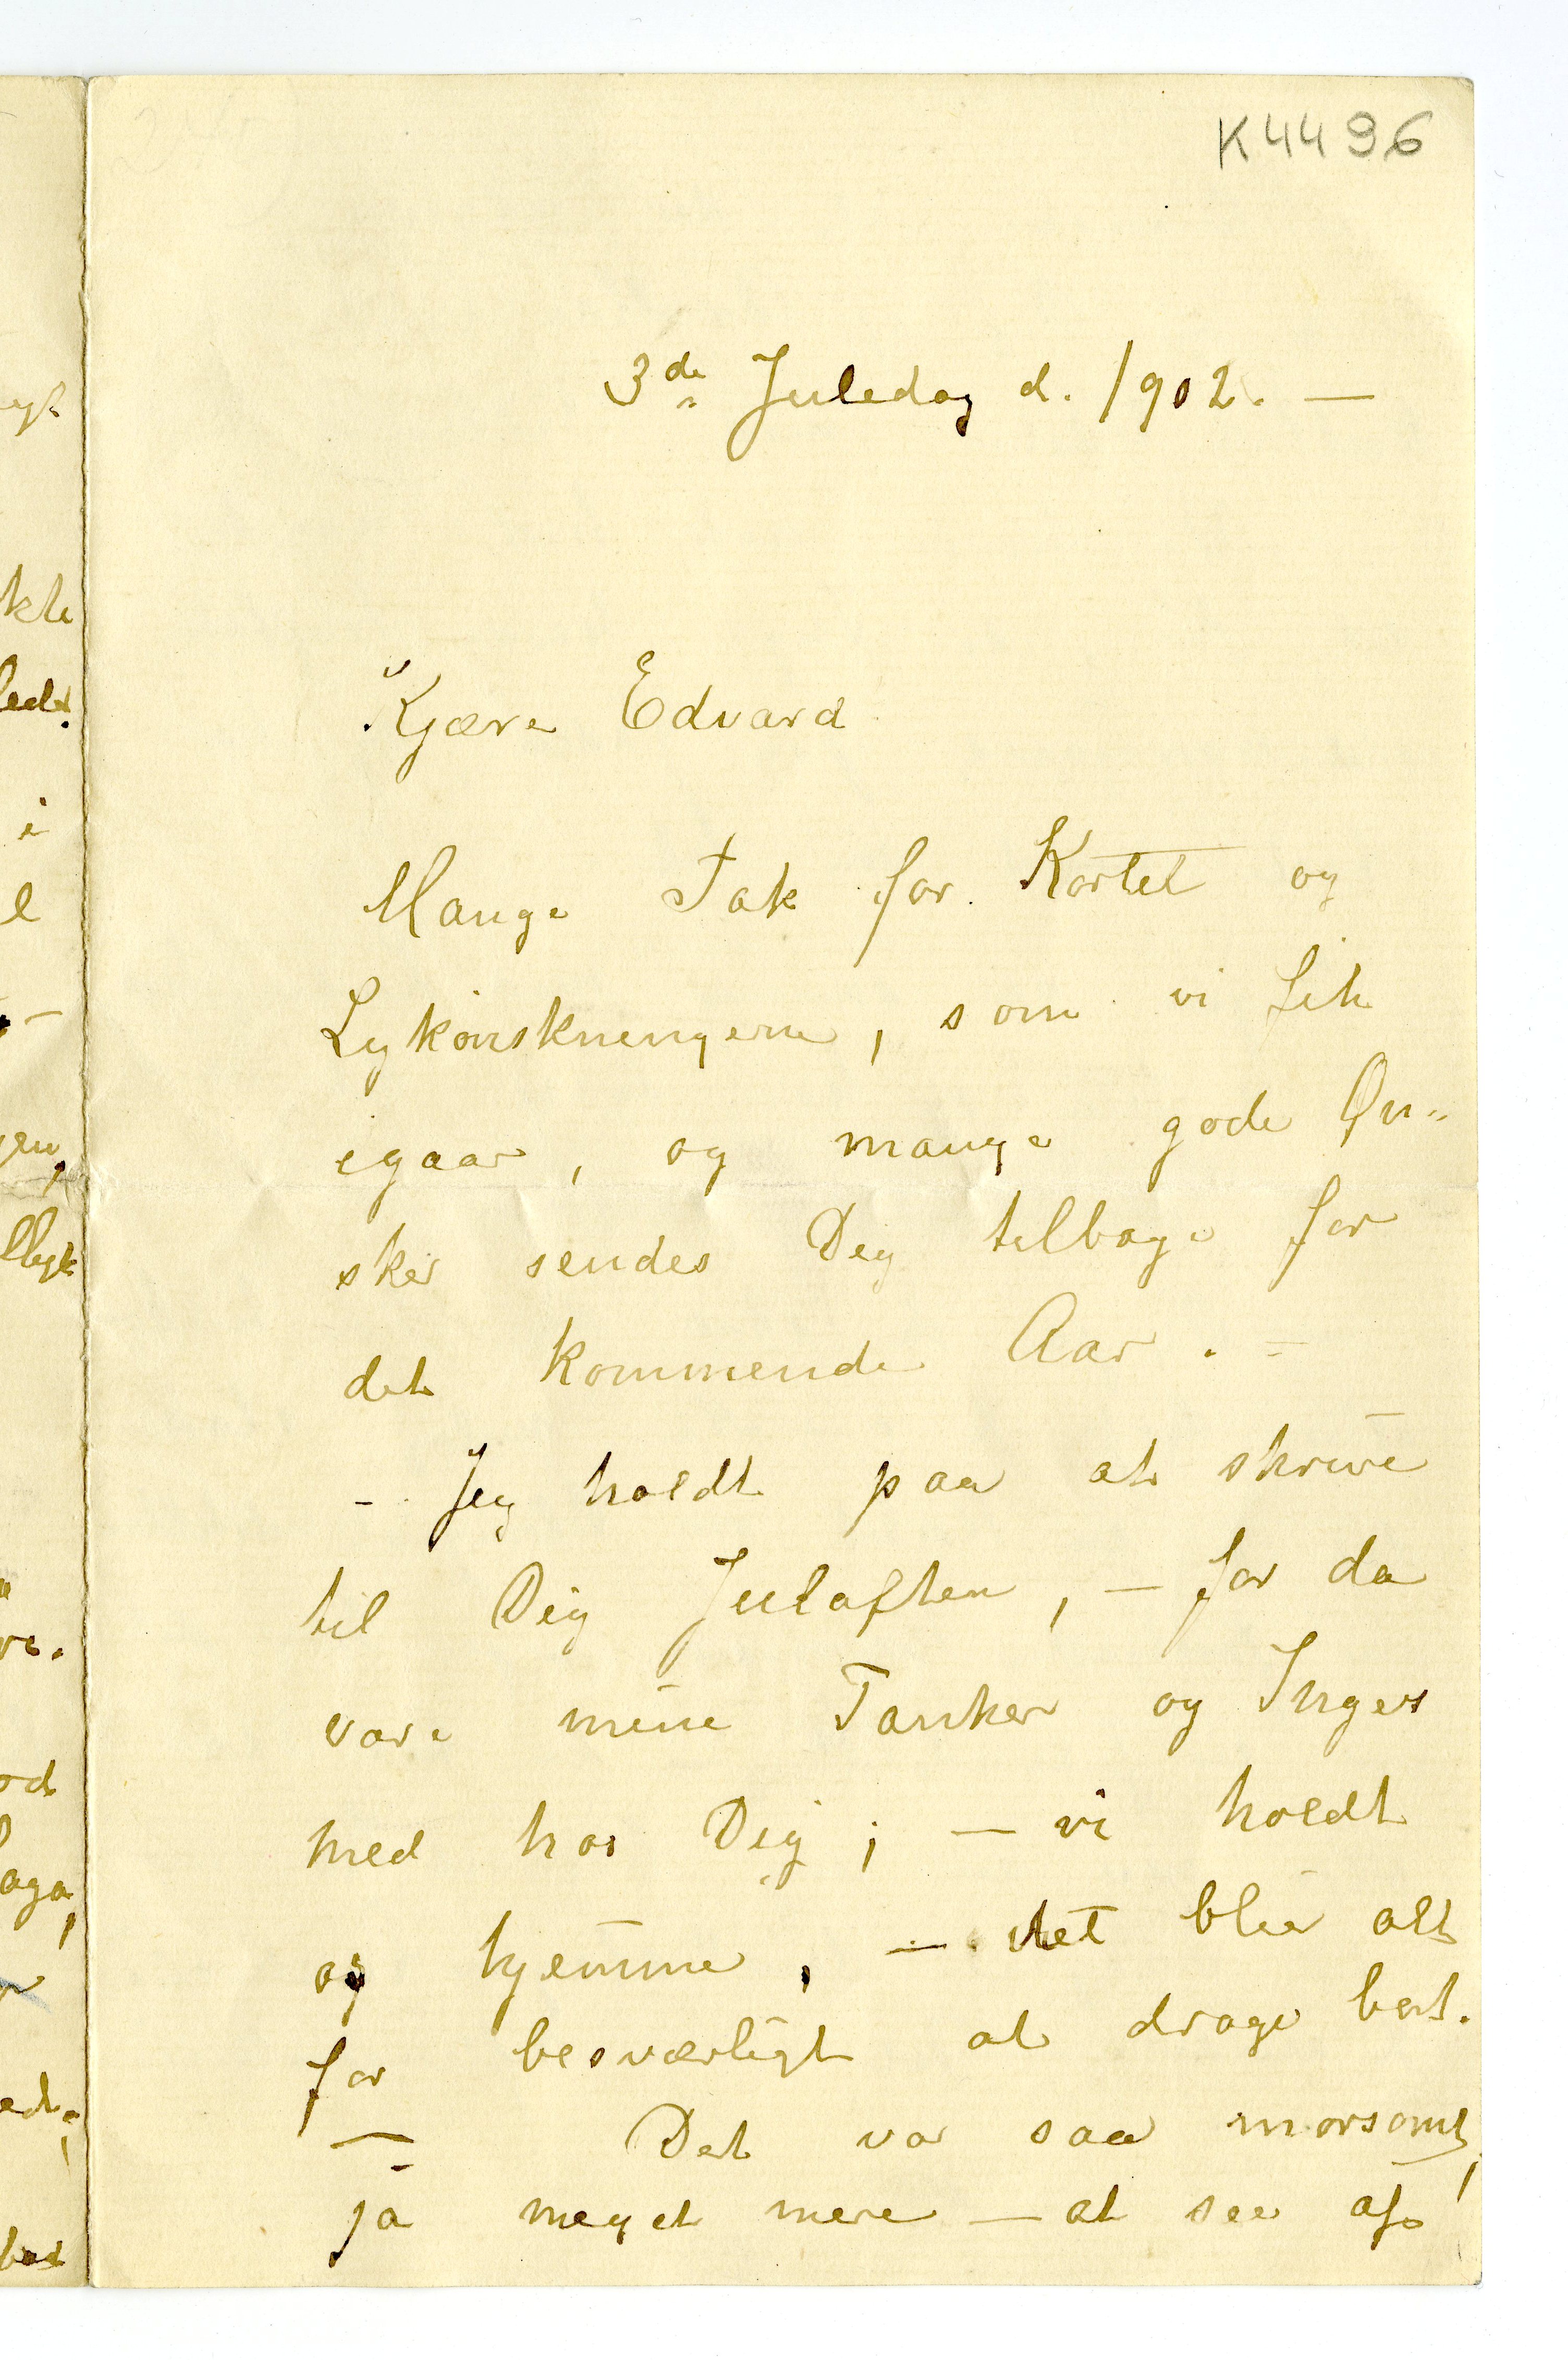 K4496
3de Juledag d. 1902. —
Kjære Edvard
Mange Tak for Kortet og
Lykønskningerne, som vi fik
igaar, og mange gode Øn-
sker sendes Dig tilbage for
det kommende Aar. –
– Jeg holdt paa at skrive
til Dig Julaften, — for da
vare mine Tanker og Ingers
med hos Dig; — vi holdt
os hjemme, — det blir alt
for besværligt at drage bort.
— Det var saa morsomt,
ja meget mere — at see af